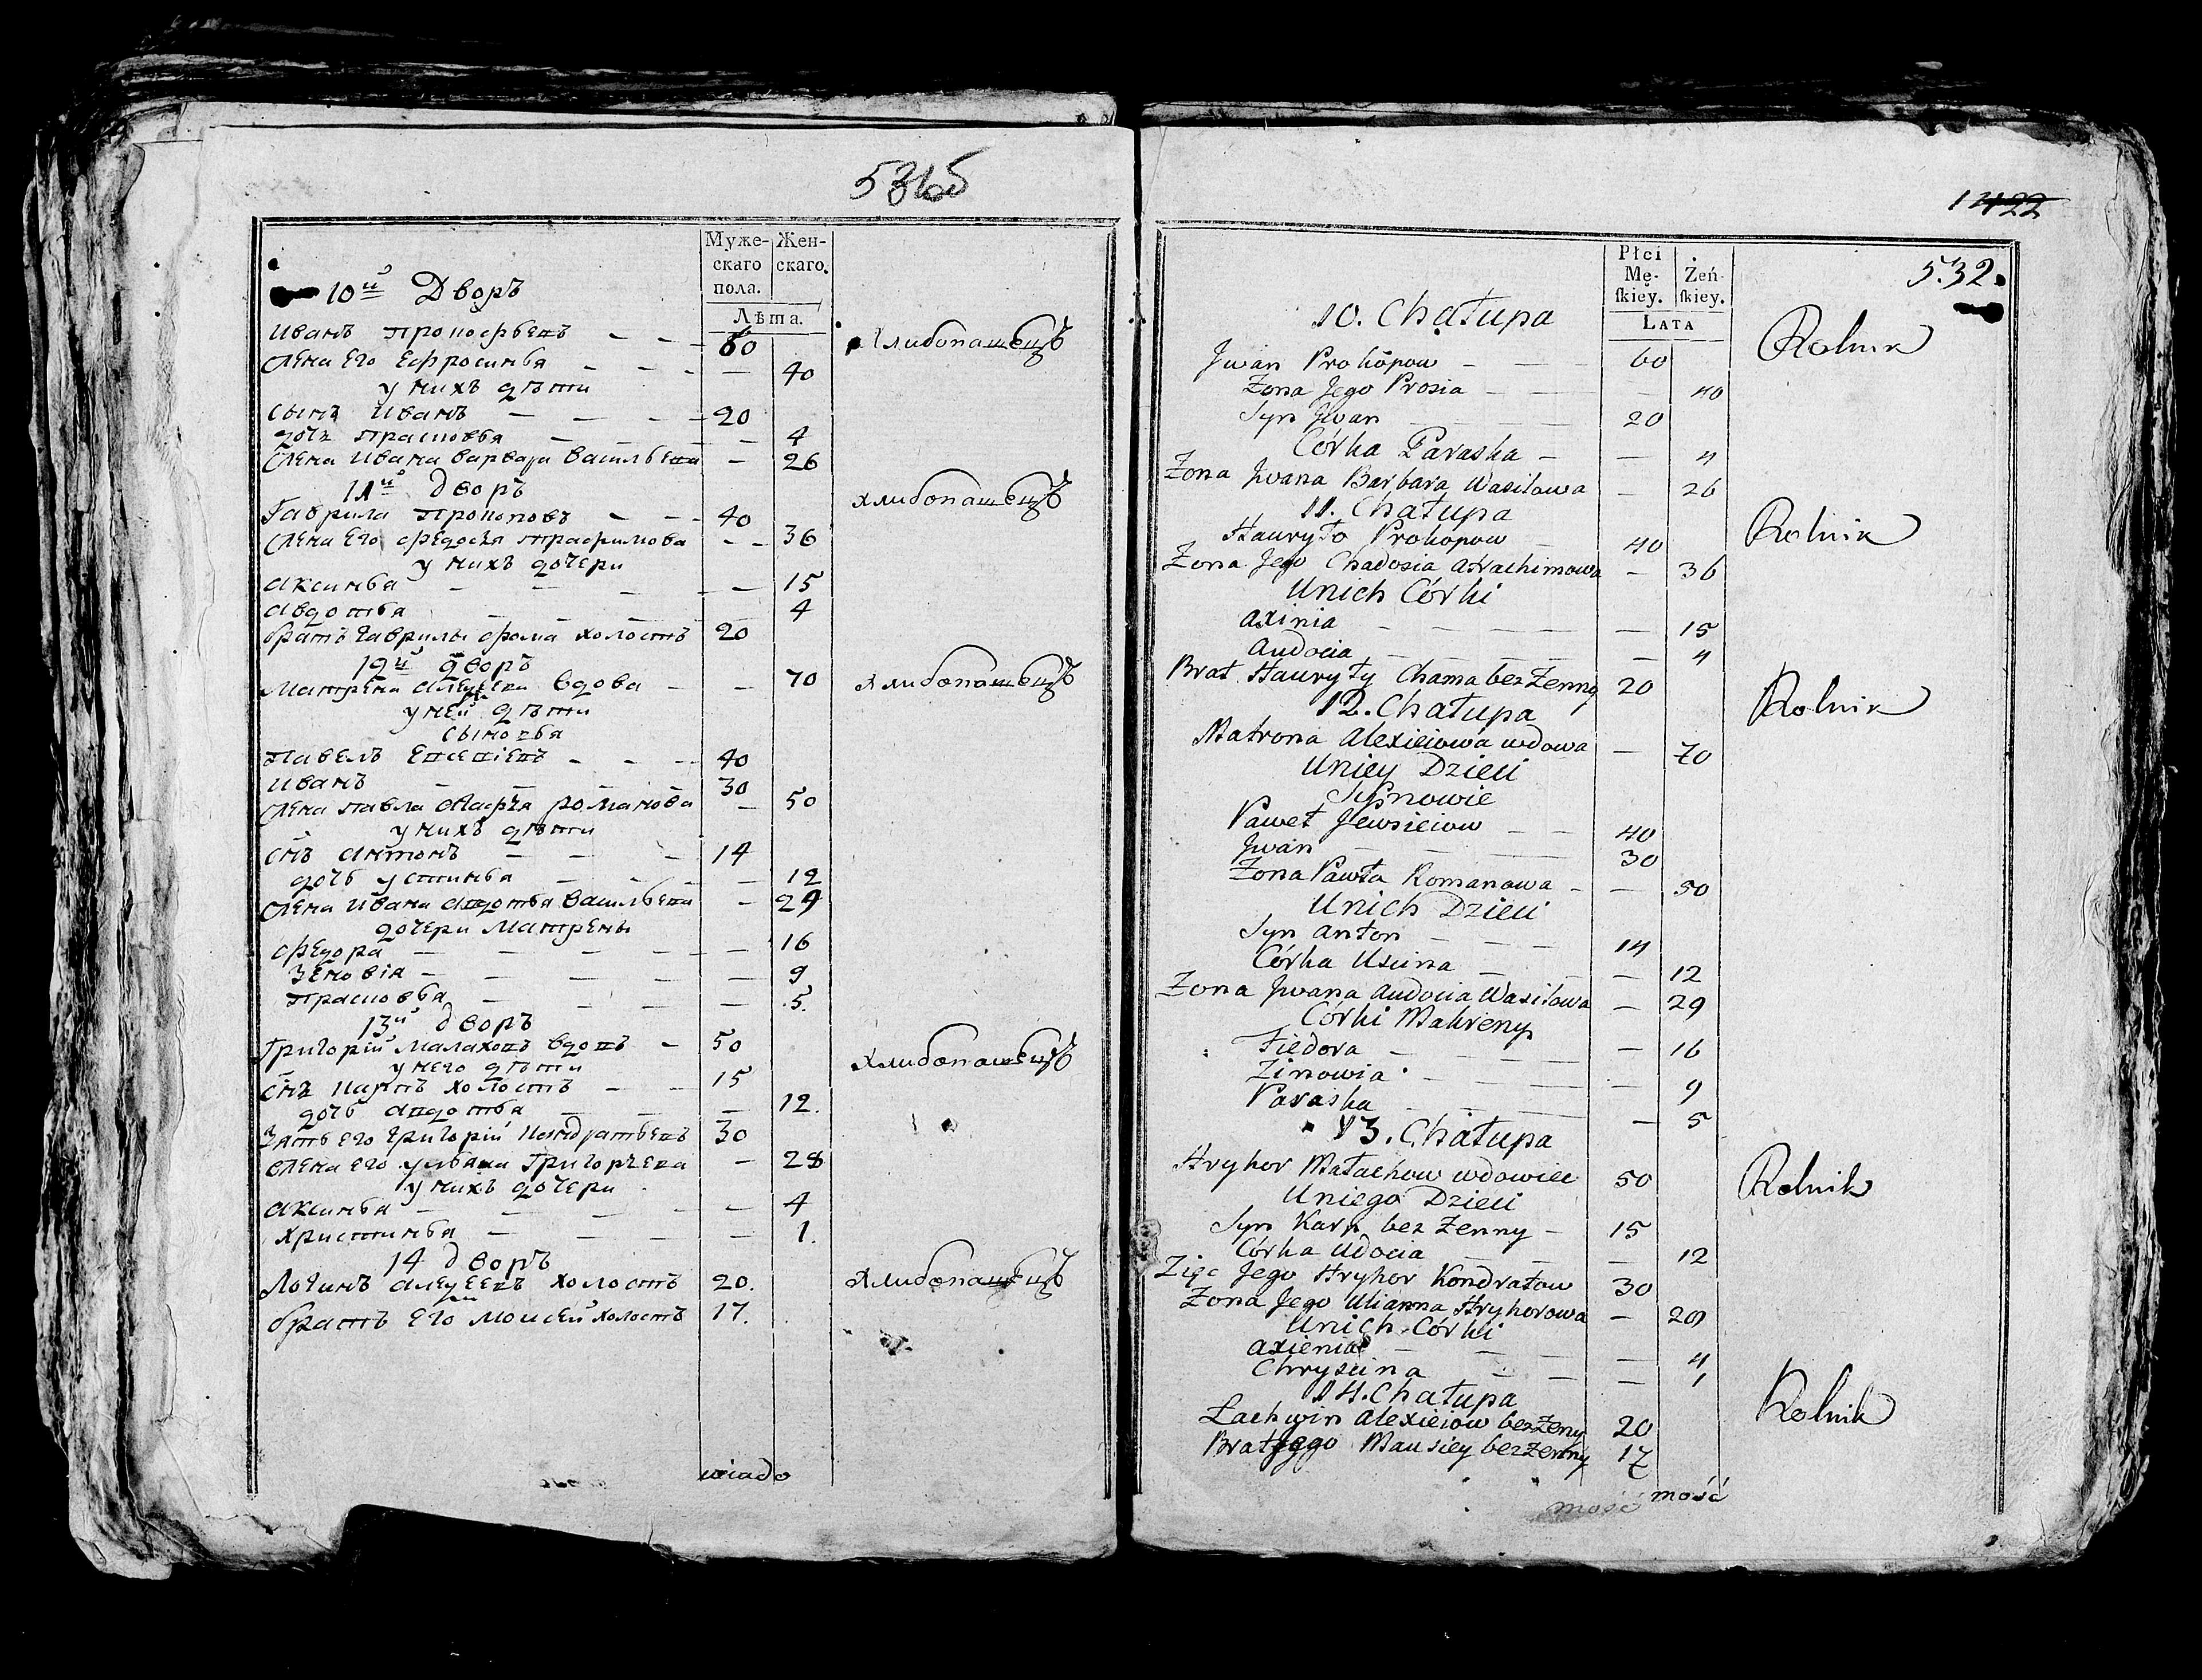 531об
Муже-
скаго
пола.
Жен-
скаго.
Лѣта.
10й Дворъ
Иванъ Прокофьевъ — 60 Хлибопашецъ
Жена Его Ефросинья — 40
у нихъ дѣти
Сынъ Иванъ — 20
дочь Прасковья — 4
Жена Ивана Варвара Васильева — 26
11й дворъ
Хлибопашецъ
Гаврила Прокоповъ — 40
Жена Его Федосья Трафимова — 36
у нихъ дочери
Аксинья — 15
Авдотья — 4
братъ Гаврилы Фома холостъ 20
12й дворъ
Матрена Алексеева вдова — 70 Хлибопашецъ
у ней дѣти
сыновья
Павелъ Евсевіевъ — 40
Иванъ — 30
Жена Павла Агафья Романова — 50
у нихъ дѣти
снъ Антонъ — 14
дочь Устинья — 12
Жена Ивана Авдотья Васильева — 29
дочери Матрены
Федора — 16
Зеновія — 9
Прасковья — 5.
13й дворъ
Григорій Малаховъ вдовъ — 50
Хлибопашецъ
у него дѣти
снъ Карпъ холостъ — 15
дочь Авдотья — 12.
Зять его Григорій Кондратьевъ 30
Жена Его Ульяна Григорьева — 28
у нихъ дочери
Аксинья — 4
Христинья — 1.
14 дворъ
Логинъ Алексеевъ холостъ 20. Хлибопашецъ
братъ Его Моисей холостъ 17.
wiado
1422
532.
Płci
Mę-
ſkiey.
Żeń-
ſkiey.
Lata
10. Chałupa
Rolnik
Jwan Prokopow — 60
Zona Jego Prosia — 40
Syn Jwan — 20
Córka Paraska — 4
Zona Jwana Barbara Wasilowa — 26
11. Chałupa
Rolnik
Hauryło Prokopow — 40
Zona Jego Chadosia Atrachimowa — 36
Unich Córki
Axinia — 15
Audocia — 4
Brat Hauryły Chama bez Zenny 20
12. Chałupa
Rolnik
Matrona Alexieiowa wdowa — 70
Uniey Dzieci
Synowie
Paweł Jewsieiow — 40
Jwan — 30
Zona Pawła Romanowa — 50
Unich Dzieci
Syn Anton — 14
Córka Uscina — 12
Zona Jwana Audocia Wasilowa — 29
Córki Makreny
Fiedora — 16
Zinowia — 9
Paraska — 5
13. Chałupa
Hryhor Małachow wdowiec 50
Rolnik
Uniego Dzieci
Syn Karp bez Zenny — 15
Córka Udocia — 12
Zięc Jego Hryhor Kondratow 30
Zona Jego Ulianna Hryhorowa — 28
Unich Córki
Axienia — 4
Chryscina — 1
14. Chałupa
Rolnik
Łachwin Alexieiow bez Zeny 20
Brat Jego Mausiey bez Zenny 17
mość
mość